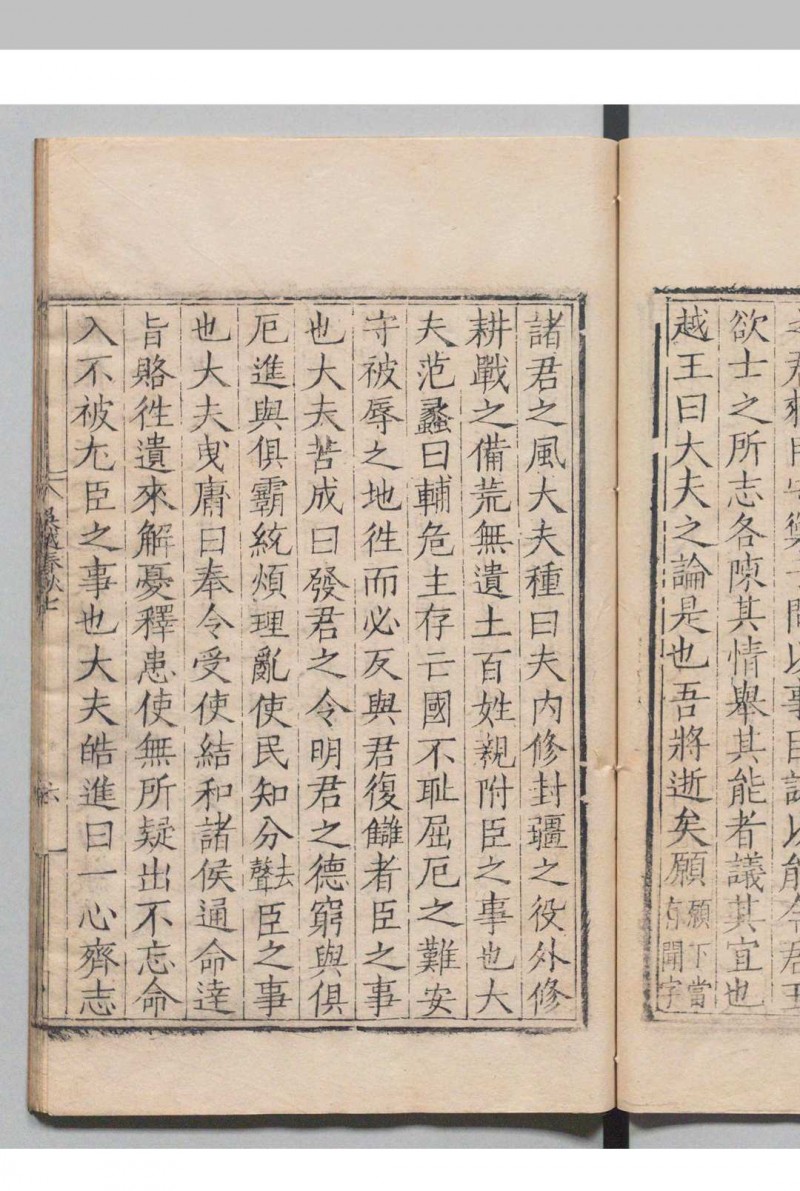 欲士之所志各陳其情舉其能者議其宜也
越王曰大夫之論是也吾將逝矣願願下當有聞字
諸君之風大夫種曰夫内修封疆之役外修
耕戰之備荒無遺土百姓親附臣之事也大
夫范蠡曰輔危主存亡國不耻屈厄之難安
守被辱之地徃而必反與君復讎者臣之事
也大夫苦成曰發君之令明君之德窮與俱
厄進與俱霸統煩理亂使民知分去聲臣之事
也大夫曳庸曰奉令受使結和諸侯通命達
旨賂徃遺來解憂釋患使無所疑出不忘命
入不被尤臣之事也大夫皓進曰一心齊志
吳越春秋七
六